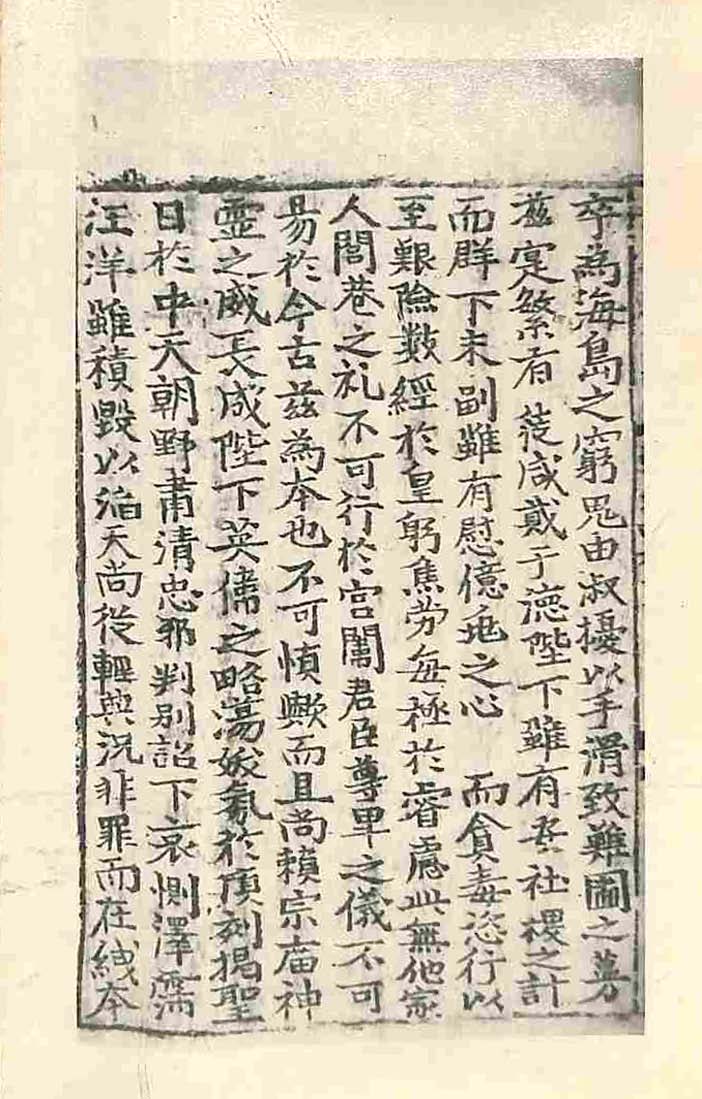 卒為海島之窮鬼由淑擾以手滑致難圖之蔓
茲寔繁有 莛咸戴于德陛下雖有奉社稷之計
而群下未副雖有慰億兆之心 而貪毒恣行以
至艱險數經於皇躬焦劳每極於睿慮此無他家
人閭巷之礼不可行於宫闈君臣尊卑之儀不可
易於今古茲為本也不可慎歟而且尚賴宗庙神
灵之威長成陛下英儁之略蕩妖氛於頃刻揭聖
日於中天朝野肅清忠邪判别詔下哀惻澤霈
汪洋雖積毀以滔天尚從輕典況非罪而在絨本